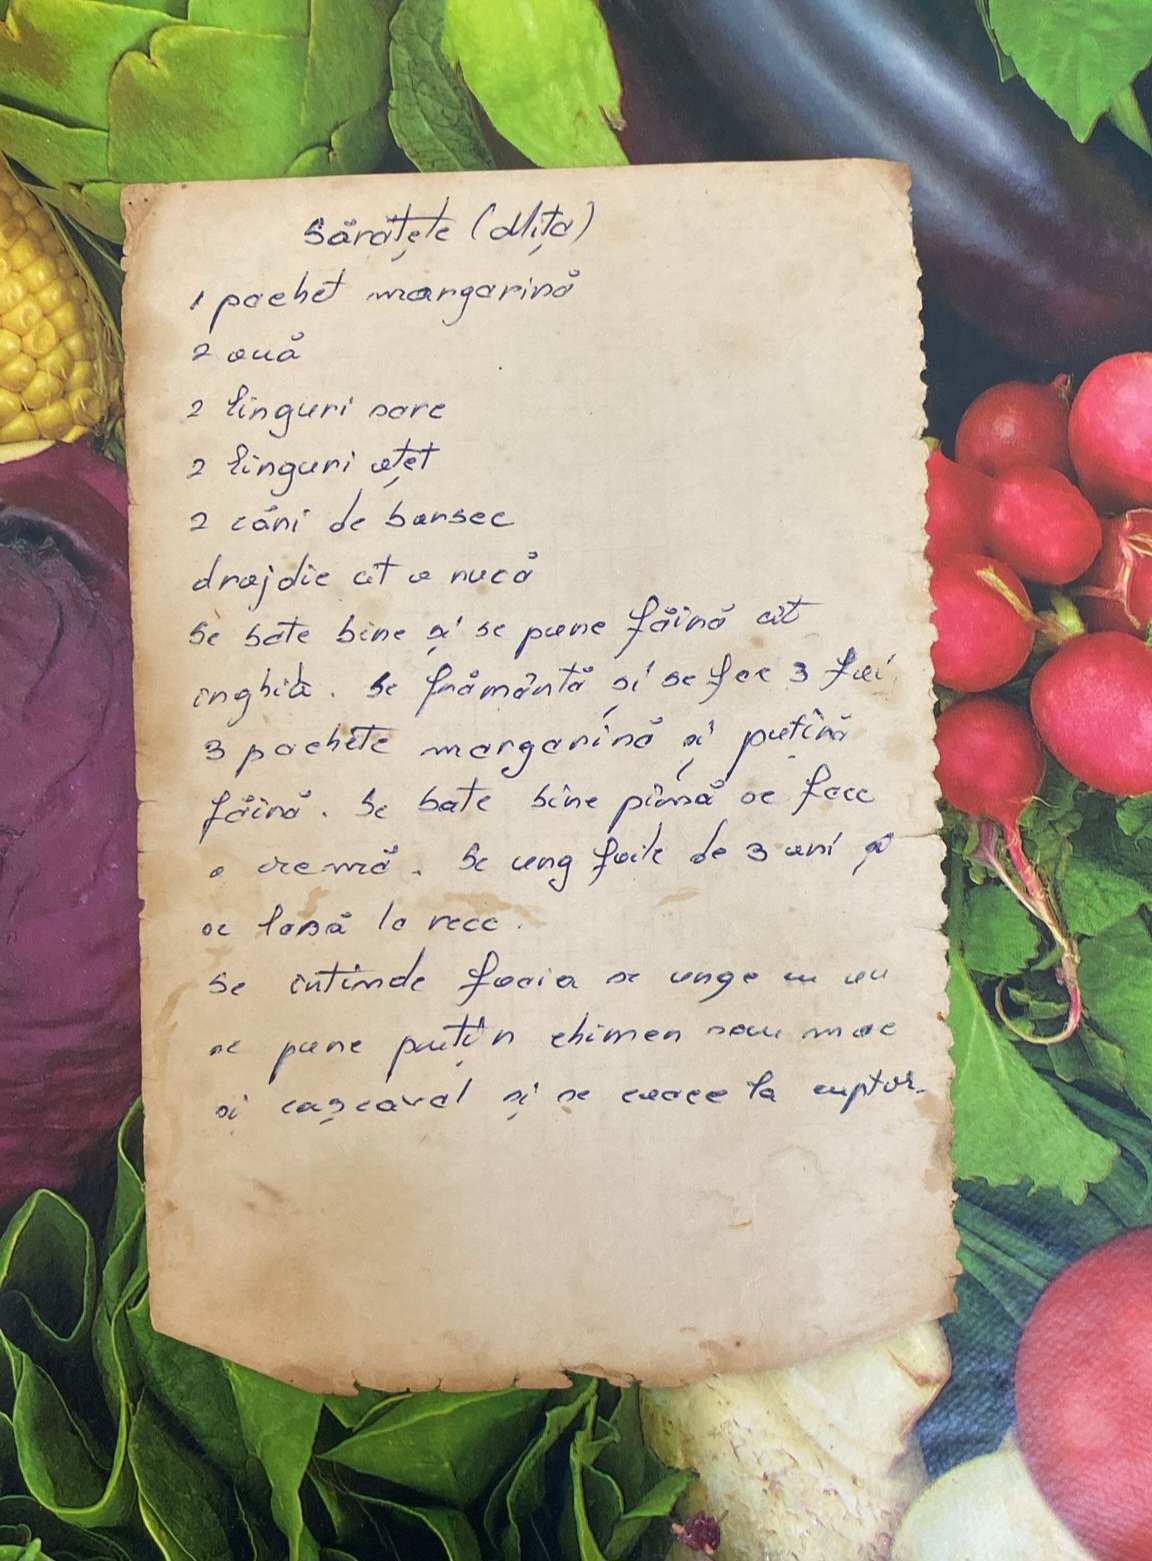 Sărățele (Mița)
1 pachet margarină
2 ouă
2 linguri sare
2 linguri oțet
2 căni de borsec
drojdie cît o nucă
Se bate bine și se pune făină cît
înghite. Se frămîntă și se fac 3 foi
3 pachete margarină și puțină
făină. Se bate bine pînă se face
o cremă. Se ung foile de 3 ori și
se lasă la rece.
Se intinde foaia se unge cu ou
se pune puțin chimen sau mac
și cașcaval și se coace la cuptor.